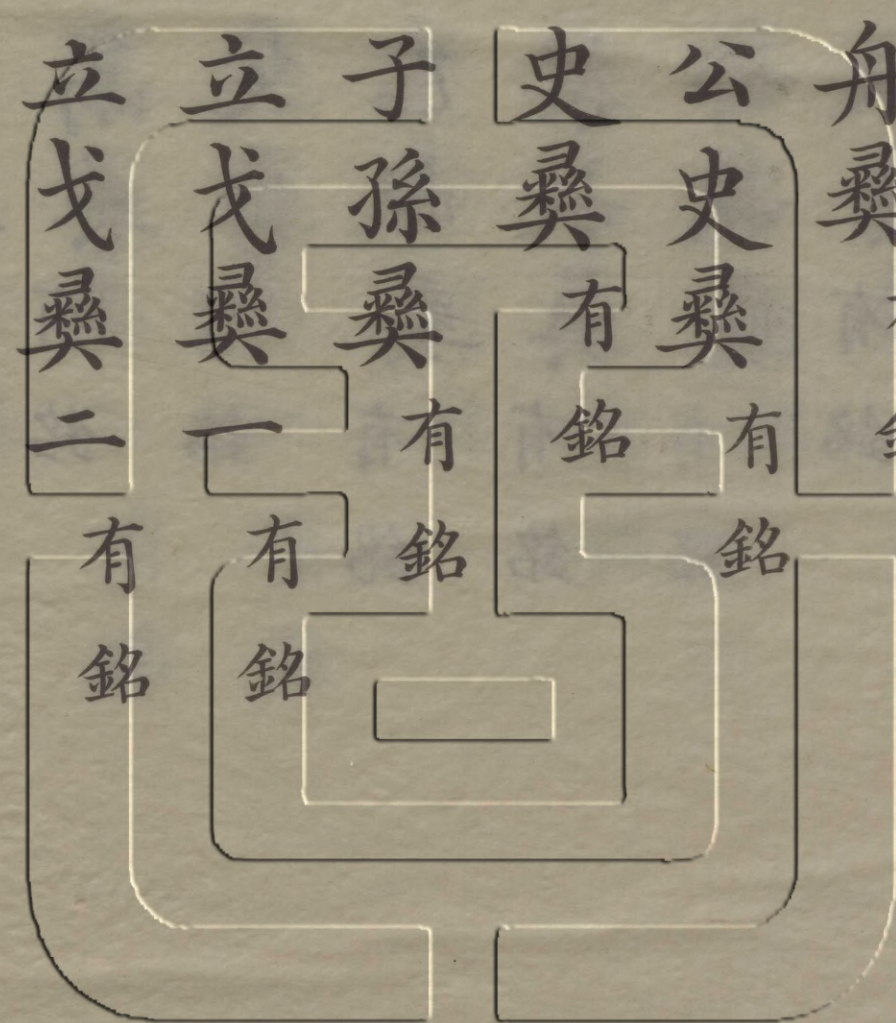 舟彝
公史彝有銘
史彝有銘
子孫彝有銘
立戈彝一有銘
立戈彝二有銘